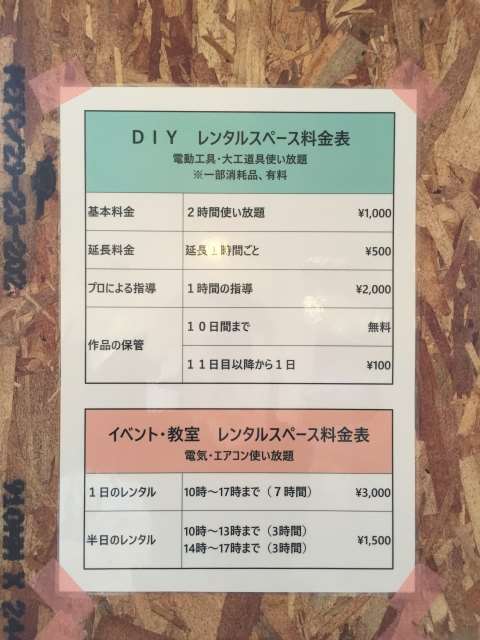 DIY レンタルスペース料金表
電動工具・大工道具使い放題
※一部消耗品、有料
基本料金 2時間使い放題 ¥1,000
延長料金 延長1時間ごと ¥500
プロによる指導 1時間の指導 ¥2,000
作品の保管
10日間まで 無料
11日目以降から1日 ¥100
イベント・教室 レンタルスペース料金表
電気・エアコン使い放題
1日のレンタル 10時～17時まで（7時間） ¥3,000
半日のレンタル
10時～13時まで（3時間）
14時～17時まで（3時間）
¥1,500